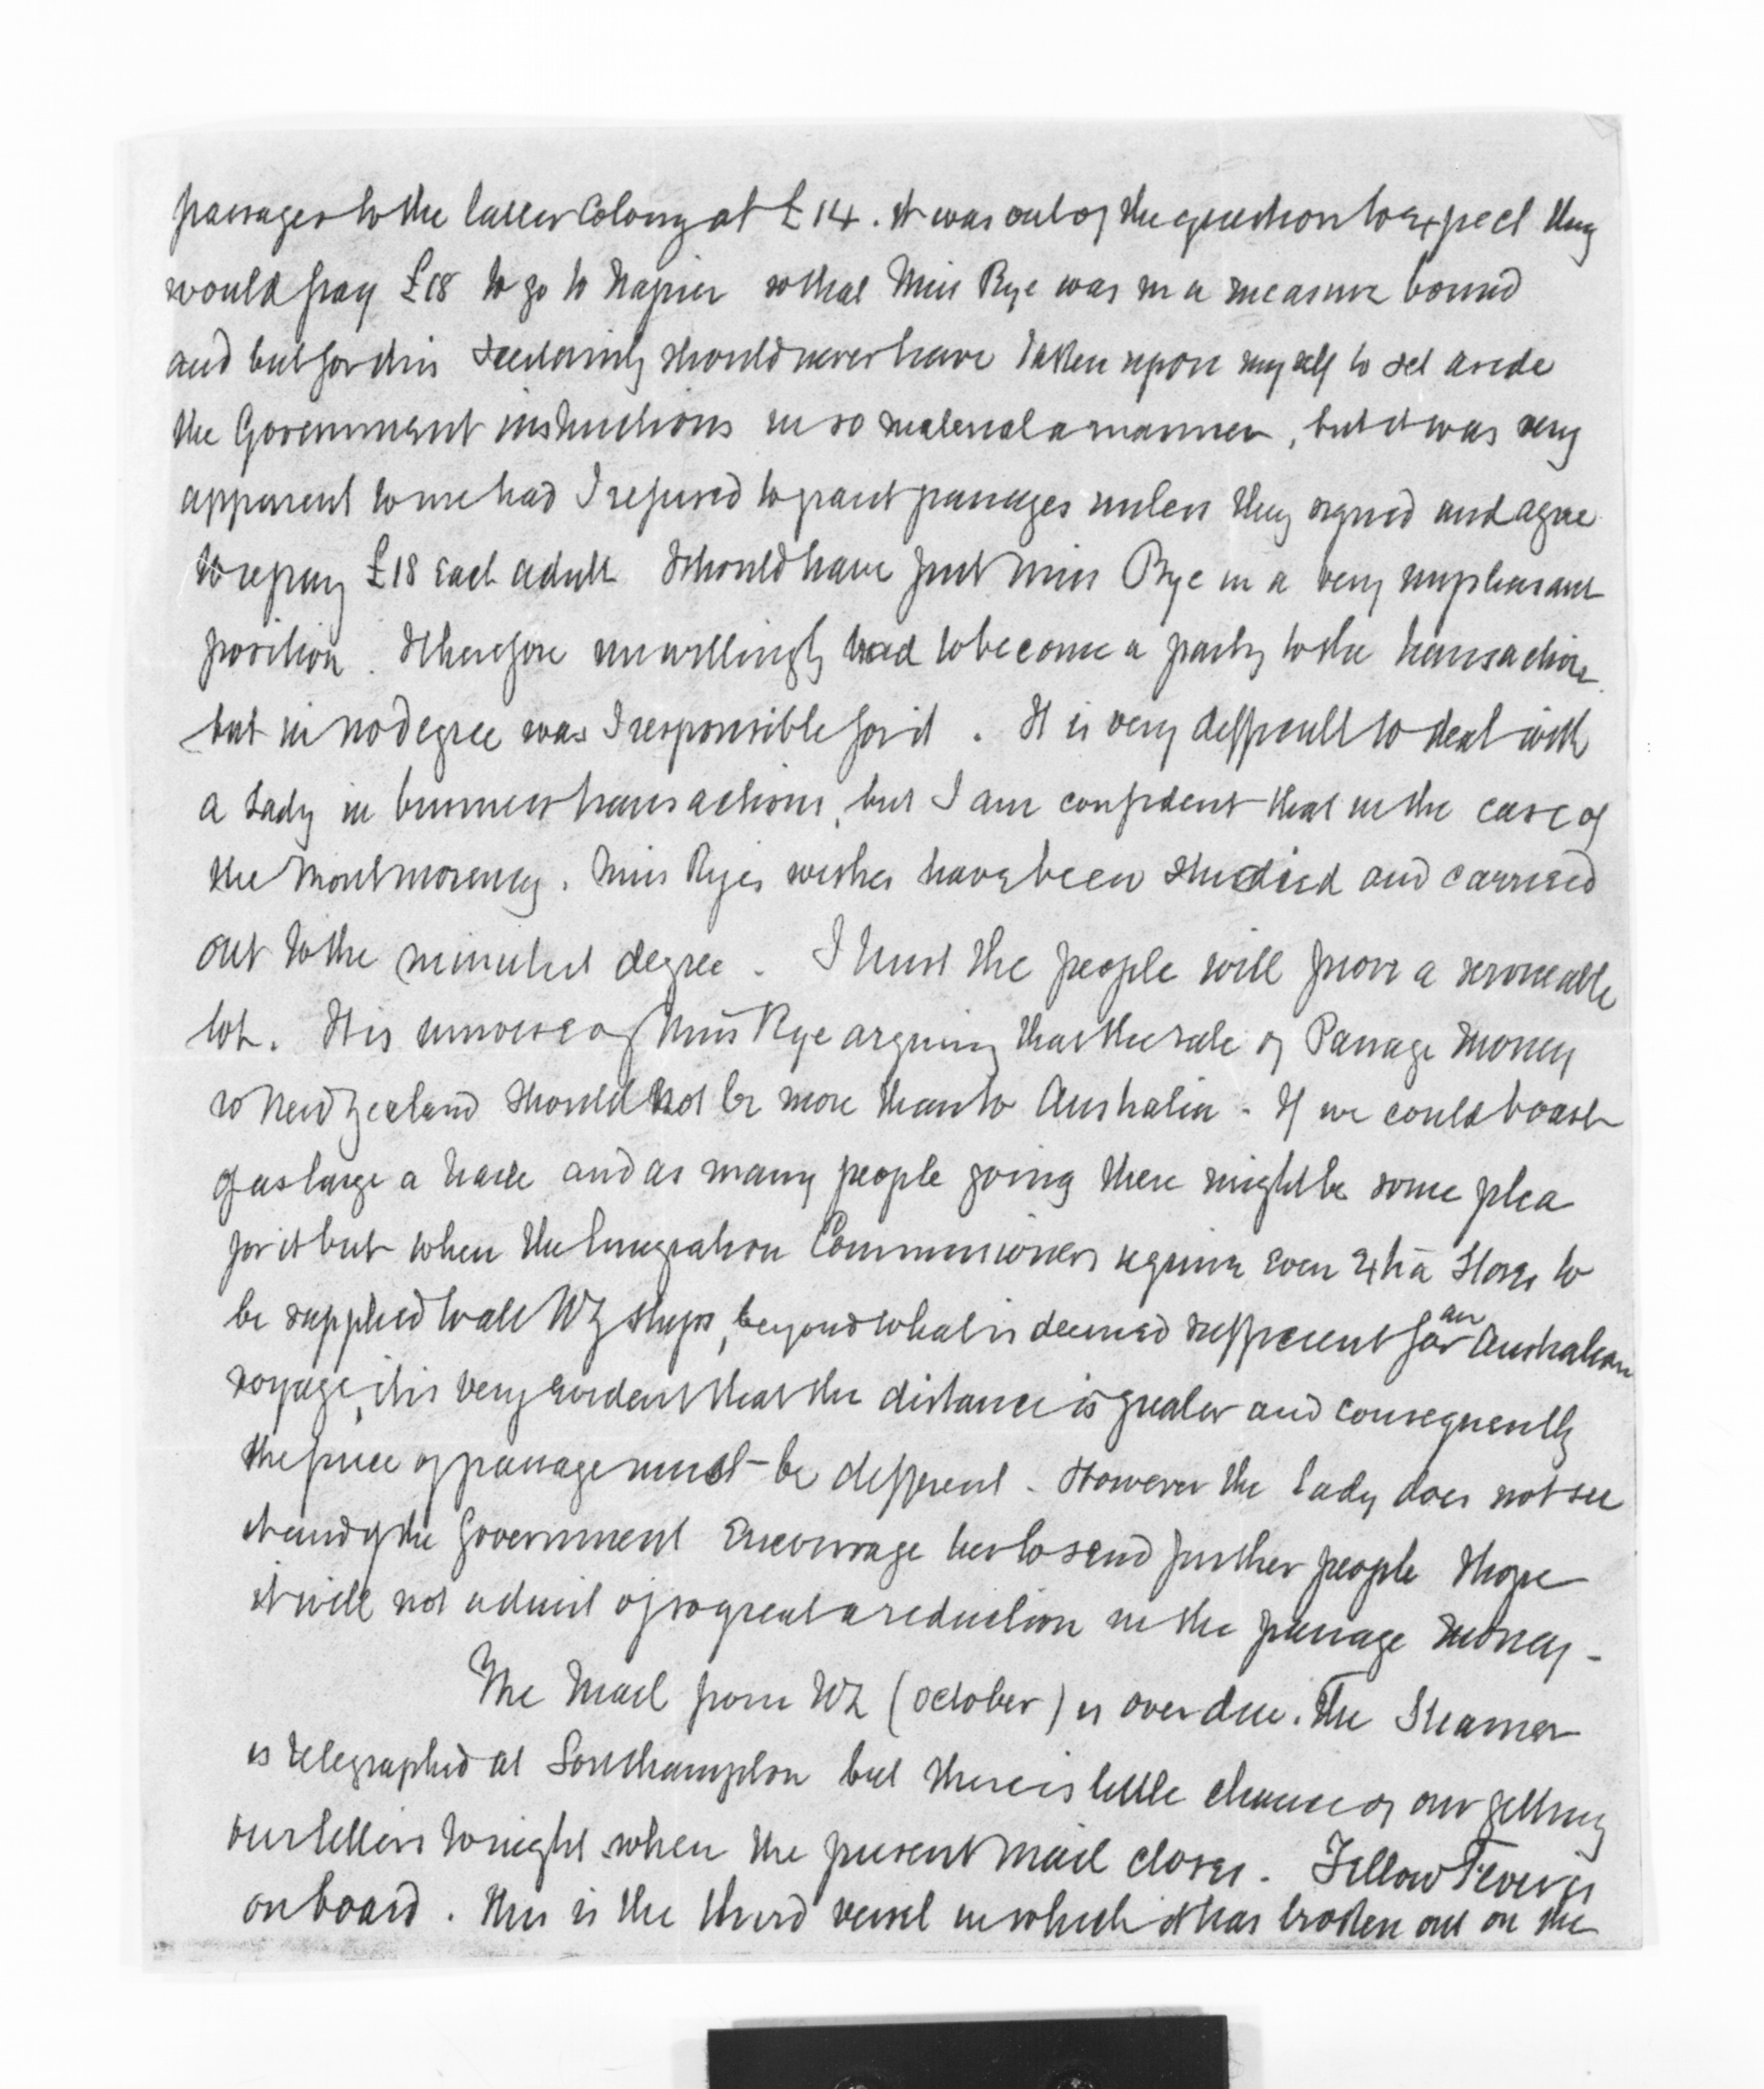 passages to the latter Colony at £14. It was out of the question to expect they
would pay £18 to go to Napier so that Miss Rye was in a measure bound
and but for this I certainly should never have taken upon myself to set aside
the Government instructions in so material a manner, but it was very
apparent to me had I refused to grant passages unless they signed and agree
to repay £18 each adult I should have put Miss Rye in a very unpleasant
position. I therefore unwillingly had to become a party to the transaction
but in no degree was I responsible for it. It is very difficult to deal with
a Lady in business transactions, but I am confident that in the case of
the Montmorency. Miss Rye's wishes have been studied and carried
out to the minutest degree. I trust the people will prove a serviceable
lot. It is unwise of Miss Rye arguing that the rate of Passage Money
to New Zealand should not be more than to Australia - If we could boast
of as large a trade and as many people going there might be some plea
for it but when the Emigration Commissioners require even extra Stores to
be supplied to all NZ ships, beyond what is deemed sufficient for an Australian
voyage, it is very evident that the distance is greater and consequently
the price of passage must be different - However the Lady does not see
it and if the Government encourage her to send further people I hope
it will not admit of so great a reduction in the passage money -
The Mail from NZ (October) is overdue. The Steamer
is telegraphed at Southampton but there is little chance of our getting
our letters tonight when the present Mail closes. Yellow Fever is
on board. This is the third vessel in which it has broken out on the